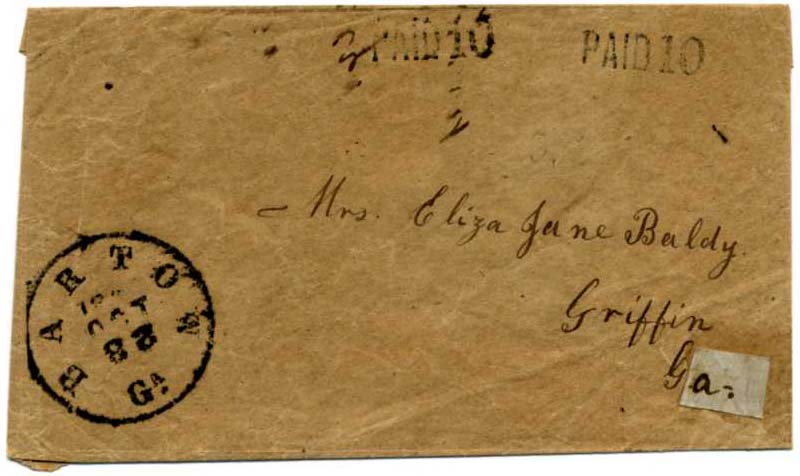 PAID 10 PAID 10
– Mrs. Eliza Jane Baldy.
Griffin
Ga.
BARTOW
OCT
Ga